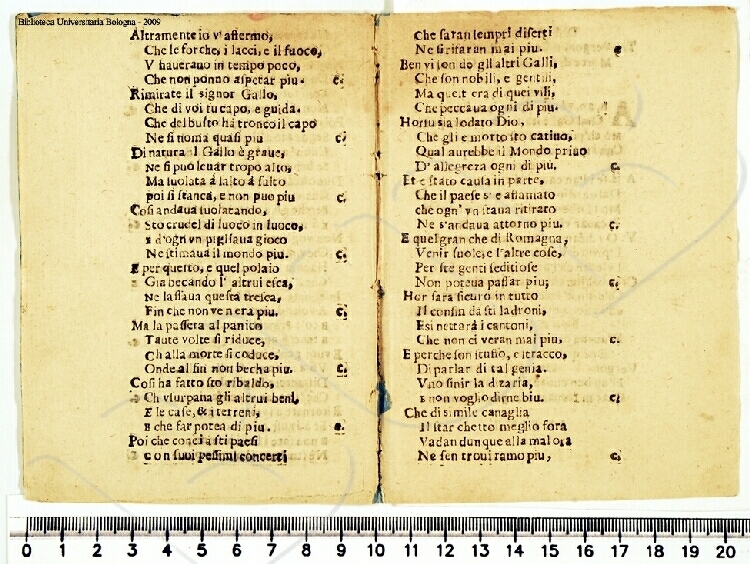 Biblioteca Universitaria Bologna - 2009
Altramente io v'affermo,
Che le forche, i lacci, e il fuoco,
V haverano in tempo poco,
Che non ponno aspetar piu. c.
Rimirate il signor Gallo,
Che di voi fu capo, e guida.
Che del busto hà tronco il capo
Ne si noma quasi piu c.
Di natura il Gallo è graue,
Ne si può leuar tropo alto,
Ma suolata à salto à salto
poi si stanca, e non puo piu c.
Cosi andaua suolatando,
Sto crudel di luoco in luoco,
E d'ogn'vn pigliaua gioco
Ne stimaua il mondo piu. c.
E per questo, e quel polaio
Gia becando l'altrui esca,
Ne lassaua questa tresca,
Fin che non ve n'era piu. c.
Ma la passera al panico
Tante volte si riduce,
Ch alla morte si coduce,
Onde al fin non becha piu. c.
Cosi ha fatto sto ribaldo,
Ch vsurpana gli altrui beni,
E le case, & i terreni,
E che far potea di piu. c.
Poi che conci à sti paesi
con suoi pessimi concerti
Che saran sempri diserti
Ne si rifaran mai piu. c
Ben vi son de gli altri Galli,
Che son nobili, e gentili,
Ma quest era di quei vili,
Che peccaua ogni di piu.
Horsu sia lodato Dio,
Che gli e morto sto catiuo,
Qual aurebbe il Mondo priuo
D'allegreza ogni di piu. c.
Et e stato causa in parte,
Che il paese s'e affamato
che ogn'vn staua ritirato
Ne s'andaua attorno piu. c.
E quel gran che di Romagna,
Venir suole, e l'altre cose,
Per ste genti seditiose
Non poteua passar piu; c.
Hor sarà sicuro in tutto
Il confin da sti ladroni,
Esi nettarà i cantoni,
Che non ci veran mai piu, c.
E perche son stufio, e stracco,
Di parlar di tal genia.
Vuo finir la dizaria,
E non voglio dirne biu. c.
Che di simile canaglia
Il star chetto meglio fora
Vadan dunque alla malora
Ne sen troui ramo piu, c.
0 1 2 3 4 5 6 7 8 9 10 11 12 13 14 15 16 17 18 19 20